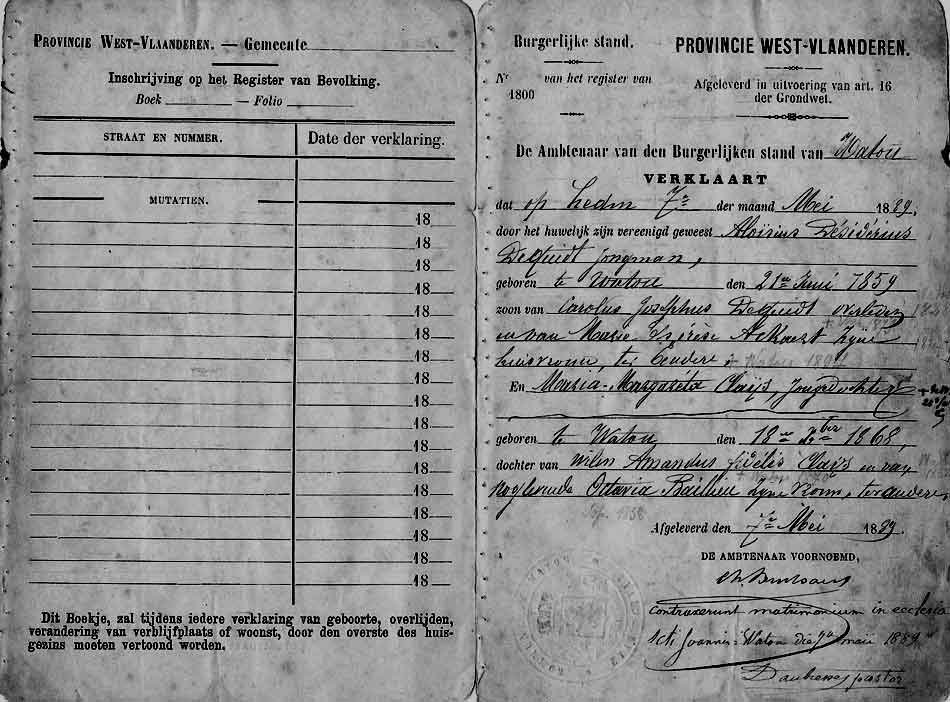 PROVINCIE WEST-VLAANDEREN. — Gemeente
Inschrijving op het Register van Bevolking.
Boek — Folio
STRAAT EN NUMMER. Date der verklaring.
MUTATIEN.
18
18
18
18
18
18
18
18
18
18
18
18
18
18
18
18
18
Dit Boekje, zal tijdens iedere verklaring van geboorte, overlijden,
verandering van verblijfplaats of woonst, door den overste des huis-
gezins moeten vertoond worden.
Burgerlijke stand.
Nr van het register van
1800
PROVINCIE WEST-VLAANDEREN.
Afgeleverd in uitvoering van art. 16
der Grondwet.
De Ambtenaar van den Burgerlijken stand van Watou
VERKLAART
dat op heden 7n der maand Mei 1889,
door het huwelijk zijn vereenigd geweest Aloisius Désidérius
Dequidt jongman,
geboren te Watou den 21en Juni 1859
zoon van Carolus Josephus Dequidt overleden
en van Marie Thérèse Ackaert zijne
huisvrouw, ter eendere
En Maria-Margarita Claijs, Jongedochter
geboren te Watou den 18en 1868,
dochter van wijlen Amandus fidélis Claijs en van
Ottavia Baillieu zijne
Afgeleverd den 7n Mei 1889
DE AMBTENAAR VOORNOEMD,
Contraxerunt matrimonium in ecclesia
Scti Joannis Watou die 7a maii 1889
pastor